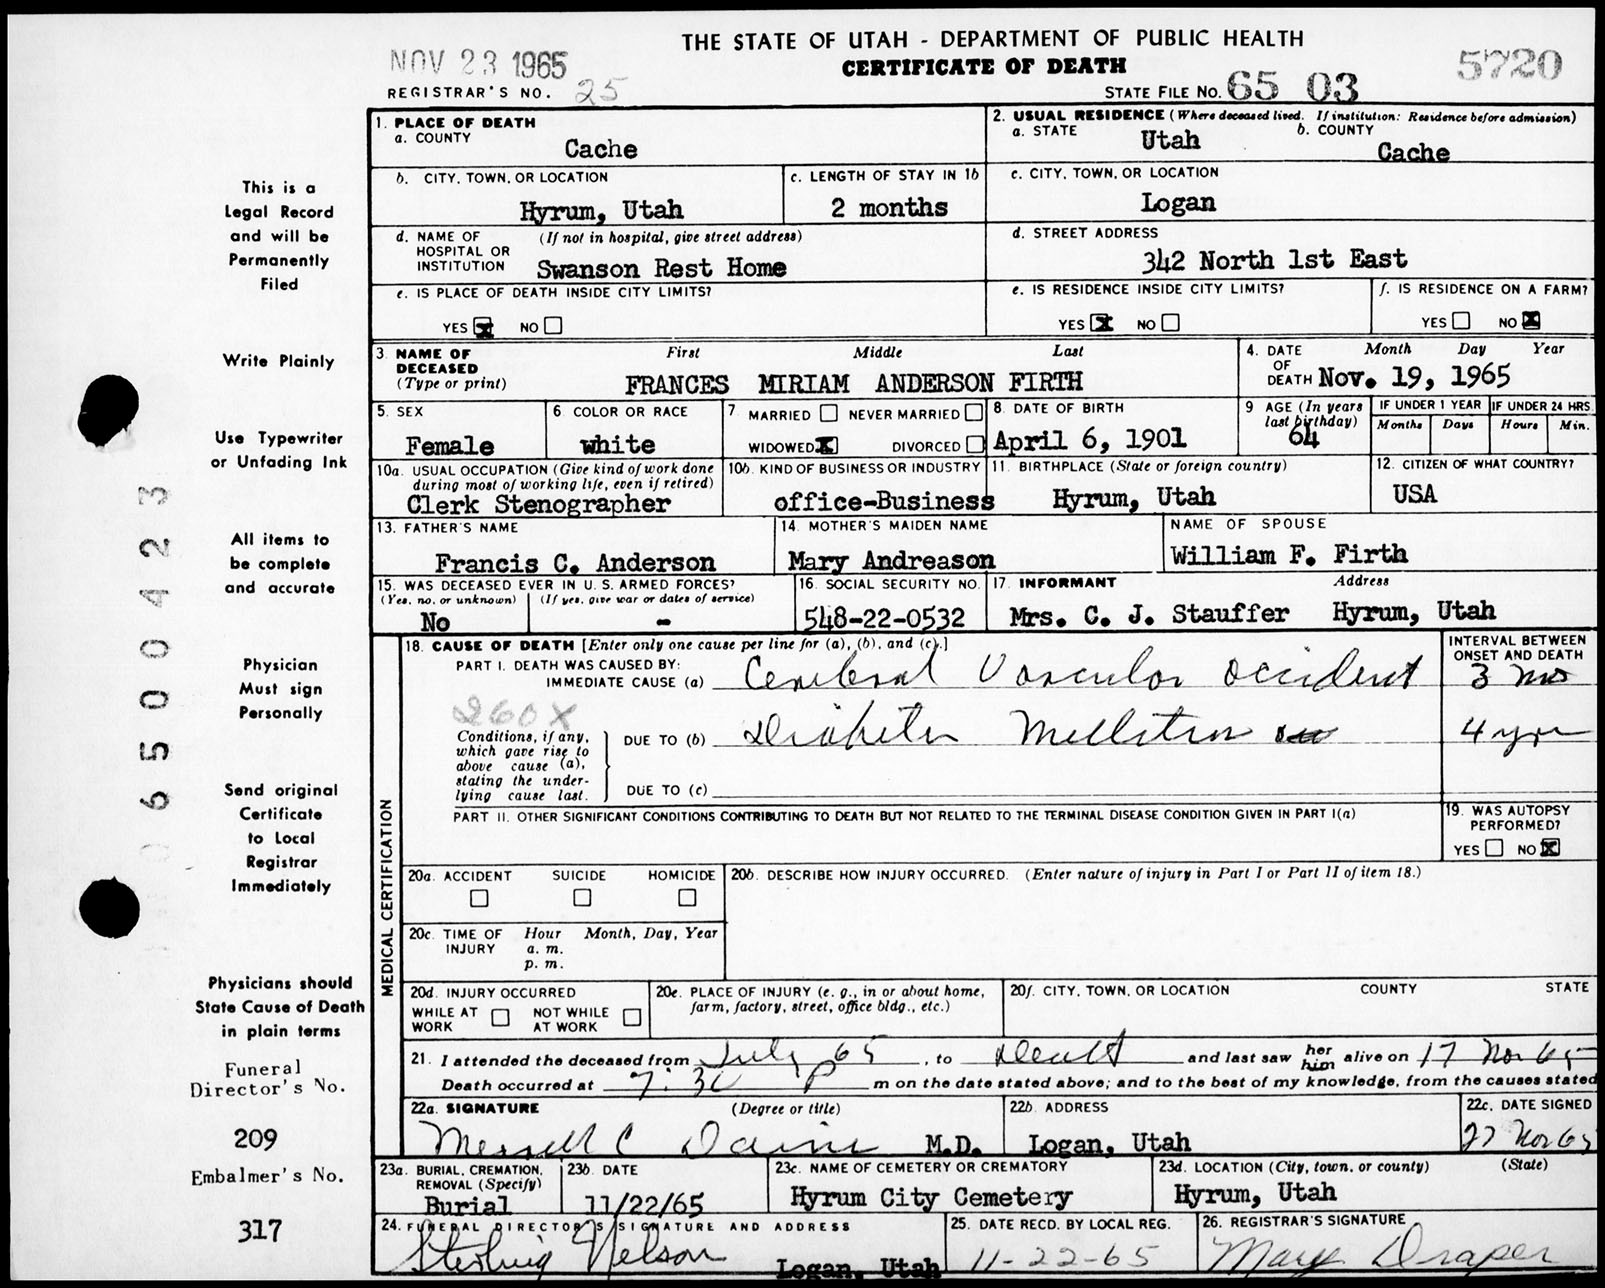 THE STATE OF UTAH - DEPARTMENT OF PUBLIC HEALTH
CERTIFICATE OF DEATH
NOV 23 1965
REGISTRAR'S NO. 25
STATE FILE NO. 65 03 5720
This is a
Legal Record
and will be
Permanently
Filed
Write Plainly
Use Typewriter
or Unfading Ink
All items to
be complete
and accurate
Physician
Must sign
Personally
Send original
Certificate
to Local
Registrar
Immediately
Physicians should
State Cause of Death
in plain terms
Funeral
Director's No.
209
Embalmer's No.
317
06500423
1. PLACE OF DEATH
a. COUNTY
Cache
2. USUAL RESIDENCE (Where deceased lived. If institution: Residence before admission)
a. STATE Utah b. COUNTY Cache
b. CITY, TOWN, OR LOCATION
Hyrum, Utah
c. LENGTH OF STAY IN 1b
2 months
c. CITY, TOWN, OR LOCATION
Logan
d. NAME OF HOSPITAL OR INSTITUTION (If not in hospital, give street address)
Swanson Rest Home
d. STREET ADDRESS
342 North 1st East
e. IS PLACE OF DEATH INSIDE CITY LIMITS?
YES x NO
e. IS RESIDENCE INSIDE CITY LIMITS?
YES x NO
f. IS RESIDENCE ON A FARM?
YES NO x
3. NAME OF DECEASED (Type or print)
First Middle Last
FRANCES MIRIAM ANDERSON FIRTH
4. DATE OF DEATH Month Day Year
Nov. 19, 1965
5. SEX
Female
6. COLOR OR RACE
white
7. MARRIED NEVER MARRIED
WIDOWED x DIVORCED
8. DATE OF BIRTH
April 6, 1901
9. AGE (In years last birthday)
64
IF UNDER 1 YEAR
Months Days
IF UNDER 24 HRS.
Hours Min.
10a. USUAL OCCUPATION (Give kind of work done during most of working life, even if retired)
Clerk Stenographer
10b. KIND OF BUSINESS OR INDUSTRY
office-Business
11. BIRTHPLACE (State or foreign country)
Hyrum, Utah
12. CITIZEN OF WHAT COUNTRY?
USA
13. FATHER'S NAME
Francis C. Anderson
14. MOTHER'S MAIDEN NAME
Mary Andreason
NAME OF SPOUSE
William F. Firth
15. WAS DECEASED EVER IN U.S. ARMED FORCES?
(Yes, no, or unknown) (If yes, give war or dates of service)
No -
16. SOCIAL SECURITY NO.
548-22-0532
17. INFORMANT Address
Mrs. C. J. Stauffer Hyrum, Utah
MEDICAL CERTIFICATION
18. CAUSE OF DEATH [Enter only one cause per line for (a), (b), and (c).]
INTERVAL BETWEEN ONSET AND DEATH
PART I. DEATH WAS CAUSED BY:
IMMEDIATE CAUSE (a) Cerebral Vascular accident 3 mos
260X
Conditions, if any, which gave rise to above cause (a), stating the underlying cause last.
DUE TO (b) Diabetes Mellitus 4 yrs
DUE TO (c)
PART II. OTHER SIGNIFICANT CONDITIONS CONTRIBUTING TO DEATH BUT NOT RELATED TO THE TERMINAL DISEASE CONDITION GIVEN IN PART I(a)
19. WAS AUTOPSY PERFORMED?
YES NO x
20a. ACCIDENT SUICIDE HOMICIDE
20b. DESCRIBE HOW INJURY OCCURRED. (Enter nature of injury in Part I or Part II of item 18.)
20c. TIME OF INJURY Hour Month, Day, Year
a. m.
p. m.
20d. INJURY OCCURRED
WHILE AT WORK NOT WHILE AT WORK
20e. PLACE OF INJURY (e. g., in or about home, farm, factory, street, office bldg., etc.)
20f. CITY, TOWN, OR LOCATION COUNTY STATE
21. I attended the deceased from July 65, to Death and last saw her him alive on 17 Nov 65
Death occurred at 7:30 P m on the date stated above; and to the best of my knowledge, from the causes stated
22a. SIGNATURE (Degree or title)
Merrill C Daines M.D.
22b. ADDRESS
Logan, Utah
22c. DATE SIGNED
27 Nov 65
23a. BURIAL, CREMATION, REMOVAL (Specify)
Burial
23b. DATE
11/22/65
23c. NAME OF CEMETERY OR CREMATORY
Hyrum City Cemetery
23d. LOCATION (City, town, or county) (State)
Hyrum, Utah
24. FUNERAL DIRECTOR'S SIGNATURE AND ADDRESS
Sterling Nelson Logan, Utah
25. DATE RECD. BY LOCAL REG.
11-22-65
26. REGISTRAR'S SIGNATURE
Mary Draper